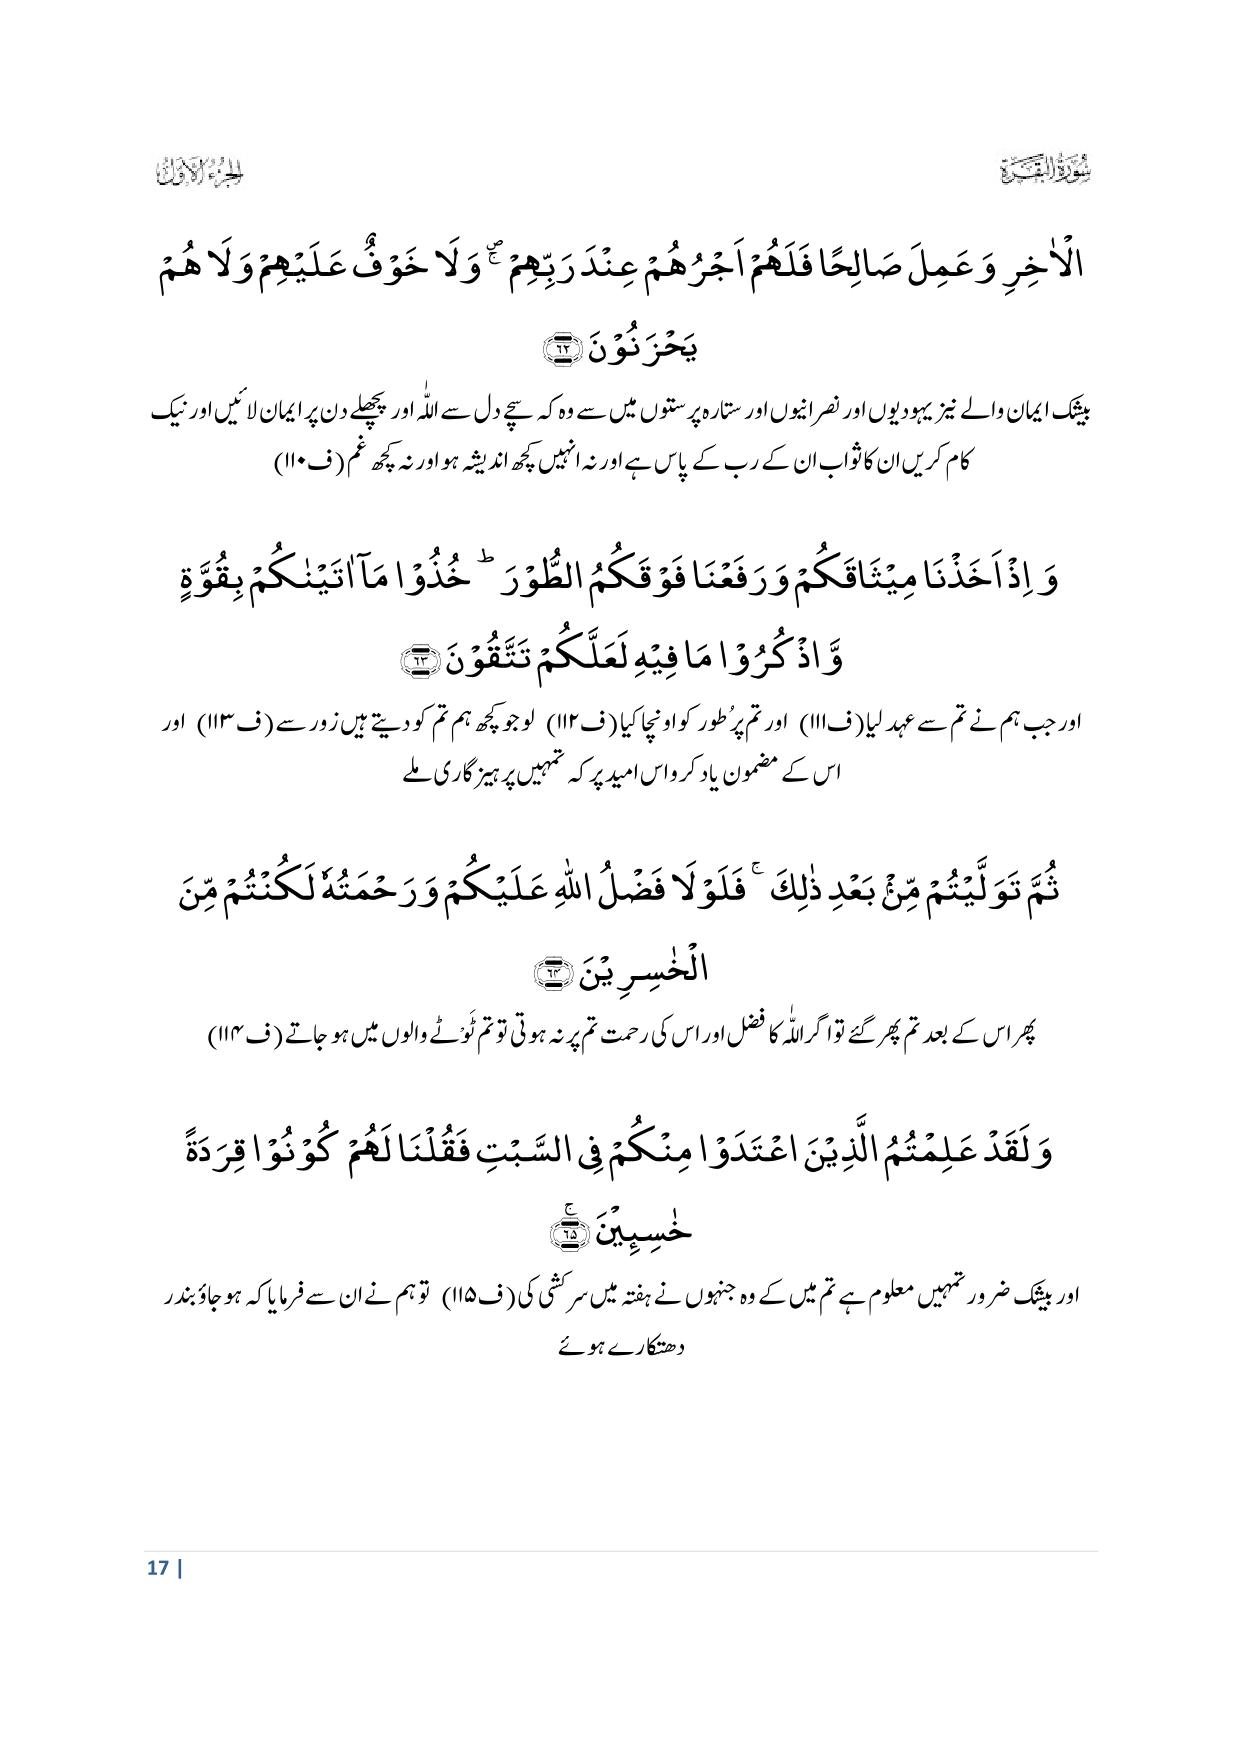 سُوْرَةُ الْبَقَـرَة الجزء الاول
الْاٰخِرِ وَعَمِلَ صَالِحًا فَلَهُمْ اَجْرُهُمْ عِنْدَ رَبِّهِمْ ۪ۚ وَلَا خَوْفٌ عَلَيْهِمْ وَلَا هُمْ
يَحْزَنُوْنَ ﴿۶۲﴾
بیشک ایمان والے نیز یہودیوں اور نصرانیوں اور ستارہ پرستوں میں سے وہ کہ سچے دل سے اللّٰہ اور پچھلے دن پر ایمان لائیں اور نیک
کام کریں ان کا ثواب ان کے رب کے پاس ہے اور نہ انہیں کچھ اندیشہ ہو اور نہ کچھ غم (ف۱۱۰)
وَ اِذْ اَخَذْنَا مِيْثَاقَكُمْ وَرَفَعْنَا فَوْقَكُمُ الطُّوْرَ ؕ خُذُوْا مَاۤ اٰتَيْنٰكُمْ بِقُوَّةٍ
وَّاذْكُرُوْا مَا فِيْهِ لَعَلَّكُمْ تَتَّقُوْنَ ﴿۶۳﴾
اور جب ہم نے تم سے عہد لیا (ف۱۱۱) اور تم پر ُطور کو اونچا کیا (ف۱۱۲) لو جو کچھ ہم تم کو دیتے ہیں زور سے (ف۱۱۳) اور
اس کے مضمون یاد کرو اس امید پر کہ تمہیں پرہیزگاری ملے
ثُمَّ تَوَلَّيْتُمْ مِّنْۢ بَعْدِ ذٰلِكَ ۚ فَلَوْلَا فَضْلُ اللّٰهِ عَلَيْكُمْ وَرَحْمَتُهٗ لَكُنْتُمْ مِّنَ
الْخٰسِرِيْنَ ﴿۶۴﴾
پھر اس کے بعد تم پھر گئے تو اگر اللّٰہ کا فضل اور اس کی رحمت تم پر نہ ہوتی تو تم ٹَوْٹے والوں میں ہو جاتے (ف۱۱۴)
وَلَقَدْ عَلِمْتُمُ الَّذِيْنَ اعْتَدَوْا مِنْكُمْ فِی السَّبْتِ فَقُلْنَا لَهُمْ كُوْنُوْا قِرَدَةً
خٰسِـِٕيْنَ ﴿ۚ۶۵﴾
اور بیشک ضرور تمہیں معلوم ہے تم میں کے وہ جنہوں نے ہفتہ میں سرکشی کی (ف۱۱۵) تو ہم نے ان سے فرمایا کہ ہو جاؤ بندر
دھتکارے ہوئے
17 |